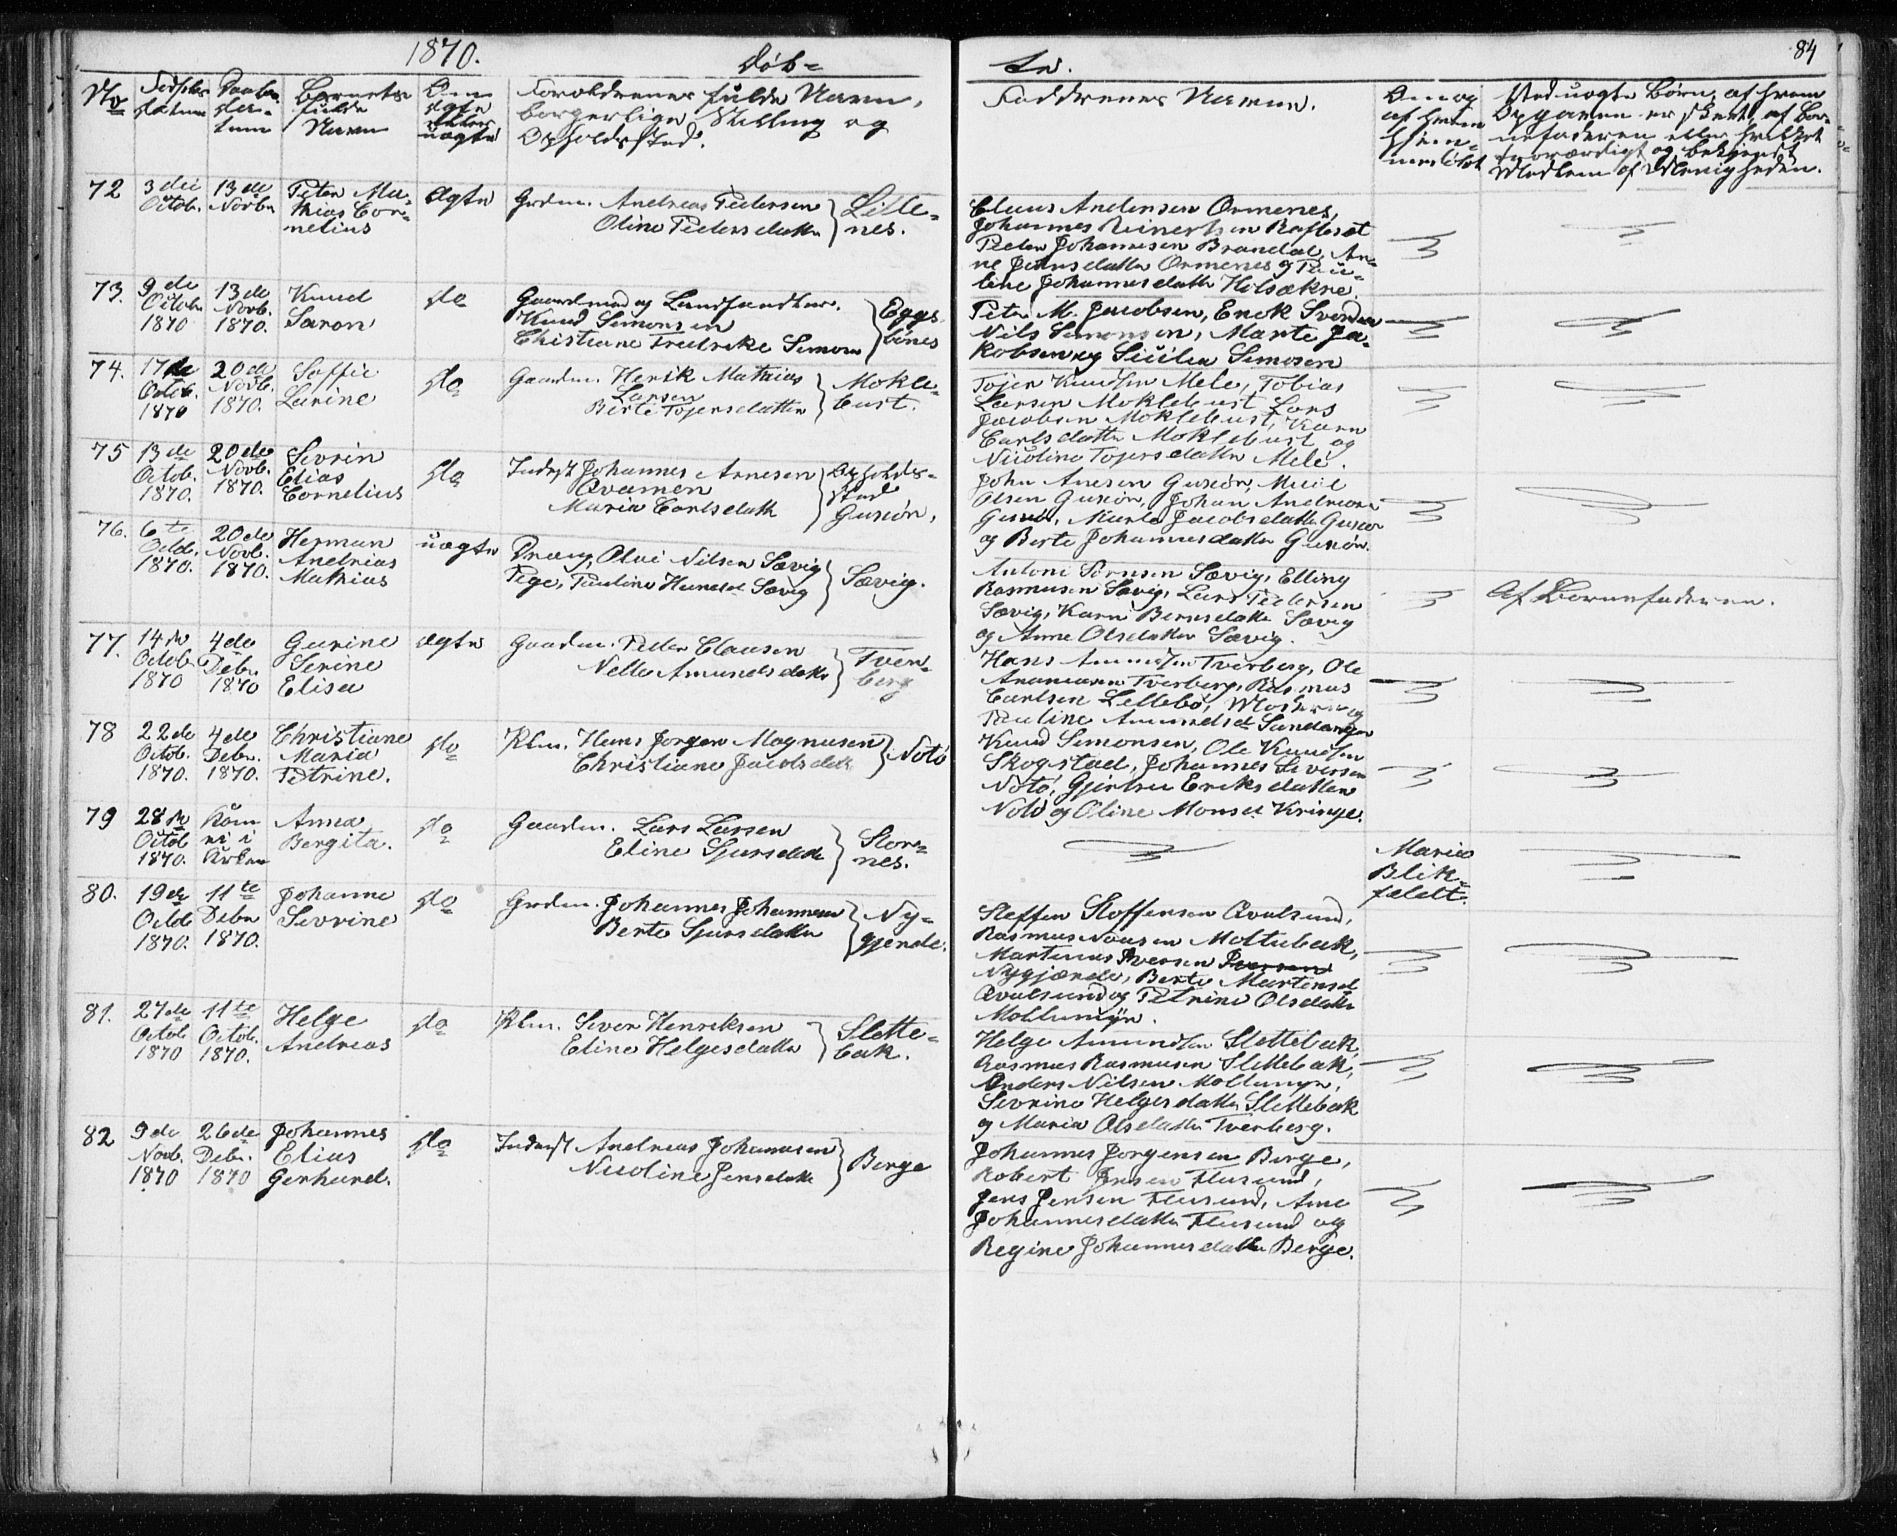 1870.
Døb-
te.
84
No
Fødsels
datum
Daabs
da-
tum
Barnets
fulde
Navn
Om
ægte
eller
uægte
Forældrenes fulde Navn,
borgerlige Stilling og
Opholdssted.
Faddernes Navne.
Om og
af hvem
hjem-
medøbt
Ved uægte Børn, af hvem
Opgaven er skeet, af Bar-
nefaderen eller hvilket
troværdigt og bekjendt
Medlem af Menigheden.
72
3die
Octob.
13de
Novbr
Peter Ma-
thias Cor-
nelius
ægte
Grdm. Andreas Pedersen
Oline Pedersdatter
Lille-
nes.
Claus Andersen Ormenes,
Johannes Reinertsen Rafteset
Peder Johannesen Brandal, An-
ne Jensdatter Ormenes og Pau-
line Johannesdatter Holsækre
73.
9de
Octobr
1870
13de
Novb.
1870.
Knud
Saron
do
Gaardmand og Landhandler.
Knud Simonsen
Christiane Fredrike Simonsen
Eggs-
bønes
Peter M. Jacobsen, Erick Svendsen
Nils Simonsen, Marte Ja-
kobsen og Sicilia Simosen
74.
17de
Octob.
1870
20de
Novb.
1870.
Soffie
Larine
do
Gaardm. Henrik Mathias
Larsen
Berte Tojersdatter
Mokle-
bust.
Tojer Knudsen Mele, Tobias
Larsen Moklebust Lars
Jacobsen Moklebust, Karn
Carlsdatter Moklebust og
Nicoline Tojersdatter Mele.
75
13de
Octob.
1870.
20de
Novb.
1870.
Sevrin
Elias
Cornelius
do
Inderst Johannes Arnesen
Qvamen
Maria Carlsdatt
Opholds-
sted
Gurøn,
John Anesen Gurøn,
Olsen Gurøn, Johan Andreas
Marte Jacobsdatter Gurøn
og Berte Johannesdatter Gurøn.
76.
6te
Octb.
1870.
20de
Novb.
1870.
Herman
Andreas
Mathias
uægte
Dreng, Olai Nilsen Sævig
Pige, Pauline Hansd. Sævig
Sævig.
Antoni Sørnsen Sævig, Elling
Rasmusen Sævig, Lars Pedersen
Sævig, Karn Berns datter Sævig
og Anne Olsdatter Sævig.
Af Barnefaderen.
77.
14de
Octob.
1870
4de
Debr.
1870
Gurine
Serine
Elisa
ægte
Gaardm. Peder Clausen
Nelle Amundsdatter
Tver-
berg
Hans Amundsen Tverberg, Ole
Tverberg, Rasmus
Carlsen Lillebø,
Pauline Amundsd.
78
22de
Octob.
1870.
4de
Debr.
1870.
Christiane
Maria
Petrine.
do
Klm. Hans Jorgen Magnusen
Christiane Jacobsdatt
Notø
Knud Simonsen, Ole Knudsen
Skogstad, Johannes Seversen
Notø, Gjertru Eriksdatter
Notø og Oline Monsd. Kringe.
79
28de
Octob
1870.
Kom
ei i
Kirken
Anna
Bergita.
do
Gaardm. Lars Larsen
Eline Sjursdatt
Stor-
nes.
Maria
Blik-
fældt.
80.
19de
Octb
1870.
11te
Debr
1870.
Johanne
Sevrine
do
Grdm. Johannes Johannesen
Berte Sjursdatter
Ny-
gjerde.
Steffen Stoffensen Qvalsund,
Rasmus Moltubak,
Martinus Iversen Iversen
Nygjærde, Berte Martinsd.
Qvalsund og Petrine Olsdatter
Moltumyr.
81.
27de
Octob
1870
11te
Octob.
1870.
Helge
Andreas
do
Klm. Sever Henriksen
Eline Helgesdatter
Slette-
bak.
Helge Amundsen Slettebak,
Rasmus Rasmusen Slettebak,
Anders Nilsen Moltumyr,
Sevrine Helgesdatter Slettebak
og Maria Olsdatter Tverberg.
82
9de
Novb.
1870
26de
Debr.
1870
Johannes
Elias
Gerhard.
do
Inderst Andreas Johannesen
Nicoline Jensdatt
Berge
Johannes Jorgensen Berge,
Robert Jensen Flusund,
Jens Jensen Flusund, Ane
Johannesdatter Flusund og
Regine Johannesdatter Berge.